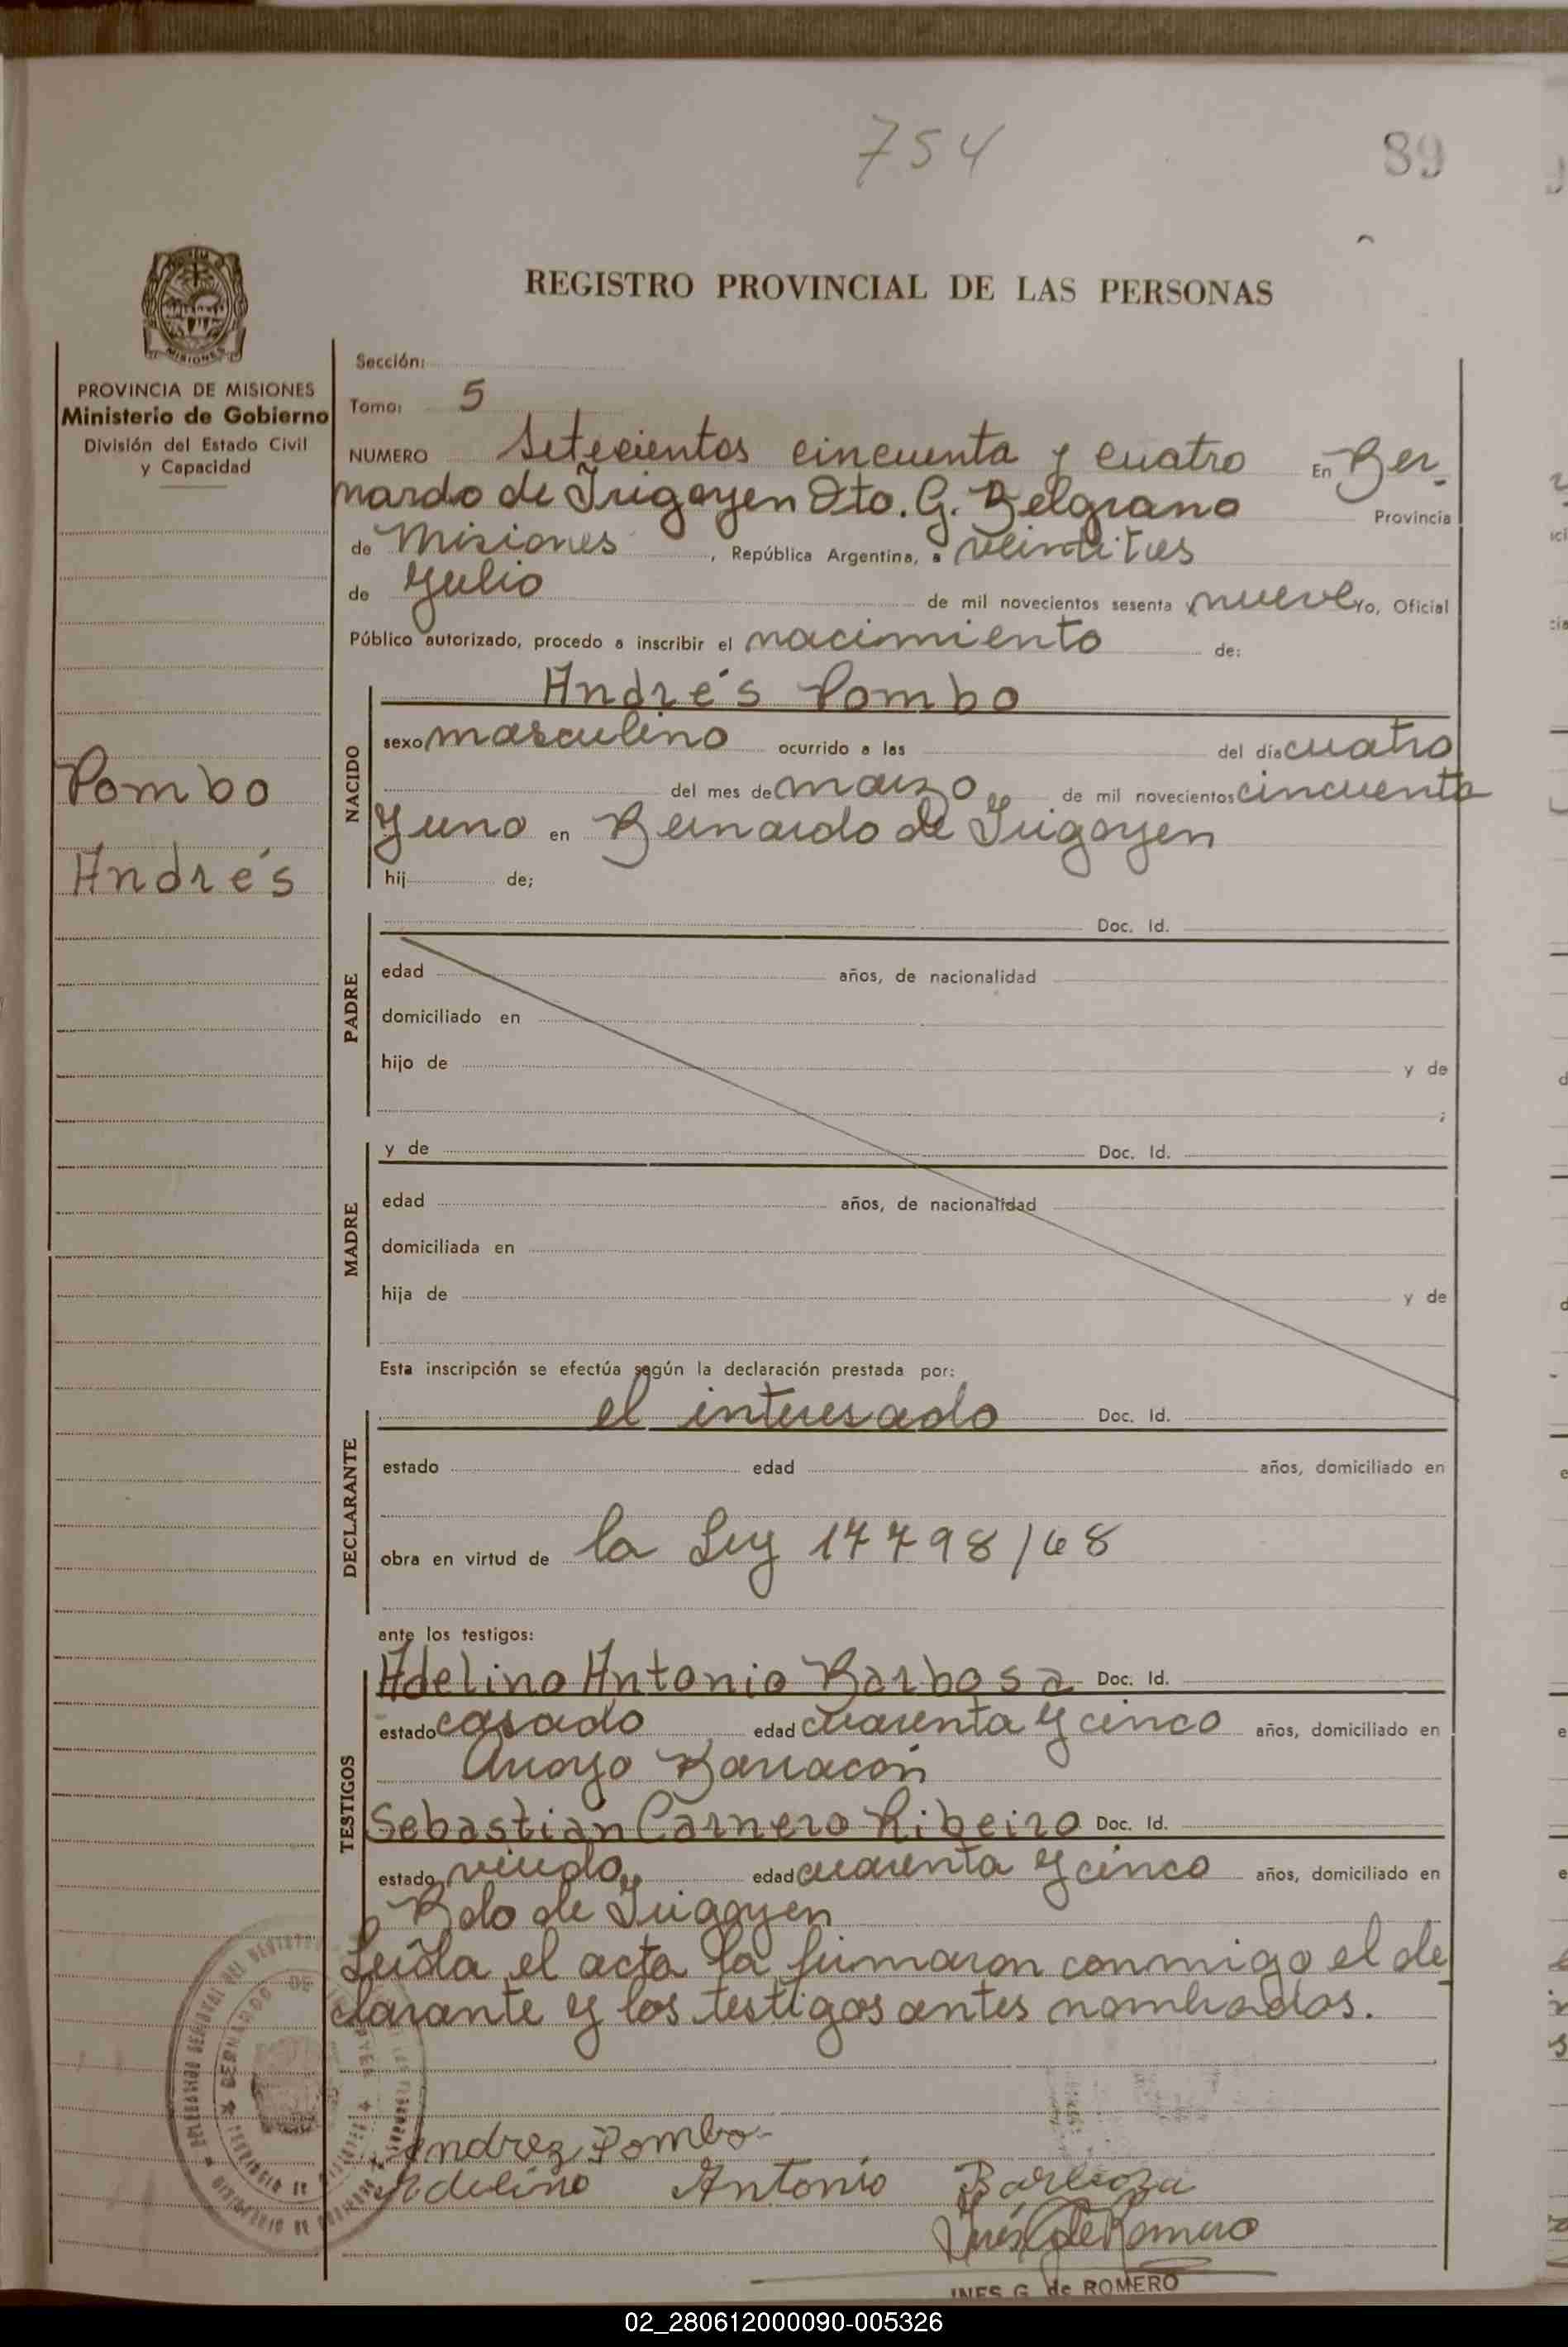 754
89
MISIONES
REGISTRO PROVINCIAL DE LAS PERSONAS
PROVINCIA DE MISIONES
Ministerio de Gobierno
División del Estado Civil
y Capacidad
Pombo
Andrés
Sección:
Tomo: 5
NUMERO Setecientos cincuenta y cuatro En Ber-
nardo de Irigoyen Dto. G. Belgrano Provincia
de Misiones, República Argentina, a veintitres
de Julio de mil novecientos sesenta y nueve Yo, Oficial
Público autorizado, procedo a inscribir el nacimiento de:
NACIDO
Andrés Pombo
sexo masculino ocurrido a las del día cuatro
del mes de marzo de mil novecientos cincuenta
y uno en Bernardo de Irigoyen
hij de;
PADRE
Doc. Id.
edad años, de nacionalidad
domiciliado en
hijo de y de
;
MADRE
y de Doc. Id.
edad años, de nacionalidad
domiciliada en
hija de y de
Esta inscripción se efectúa según la declaración prestada por:
DECLARANTE
el interesado Doc. Id.
estado edad años, domiciliado en
obra en virtud de la Ley 17798/68
ante los testigos:
TESTIGOS
Adelino Antonio Barbosa Doc. Id.
estado casado edad cuarenta y cinco años, domiciliado en
Arroyo Barracón
Sebastián Carnero Ribeiro Doc. Id.
estado viudo edad cuarenta y cinco años, domiciliado en
Bdo de Irigoyen
Leída el acta la firmaron conmigo el de
clarante y los testigos antes nombrados.
Andrez Pombo
Adelino Antonio Barboza
Inés G de Romero
INES G. de ROMERO
02_280612000090-005326